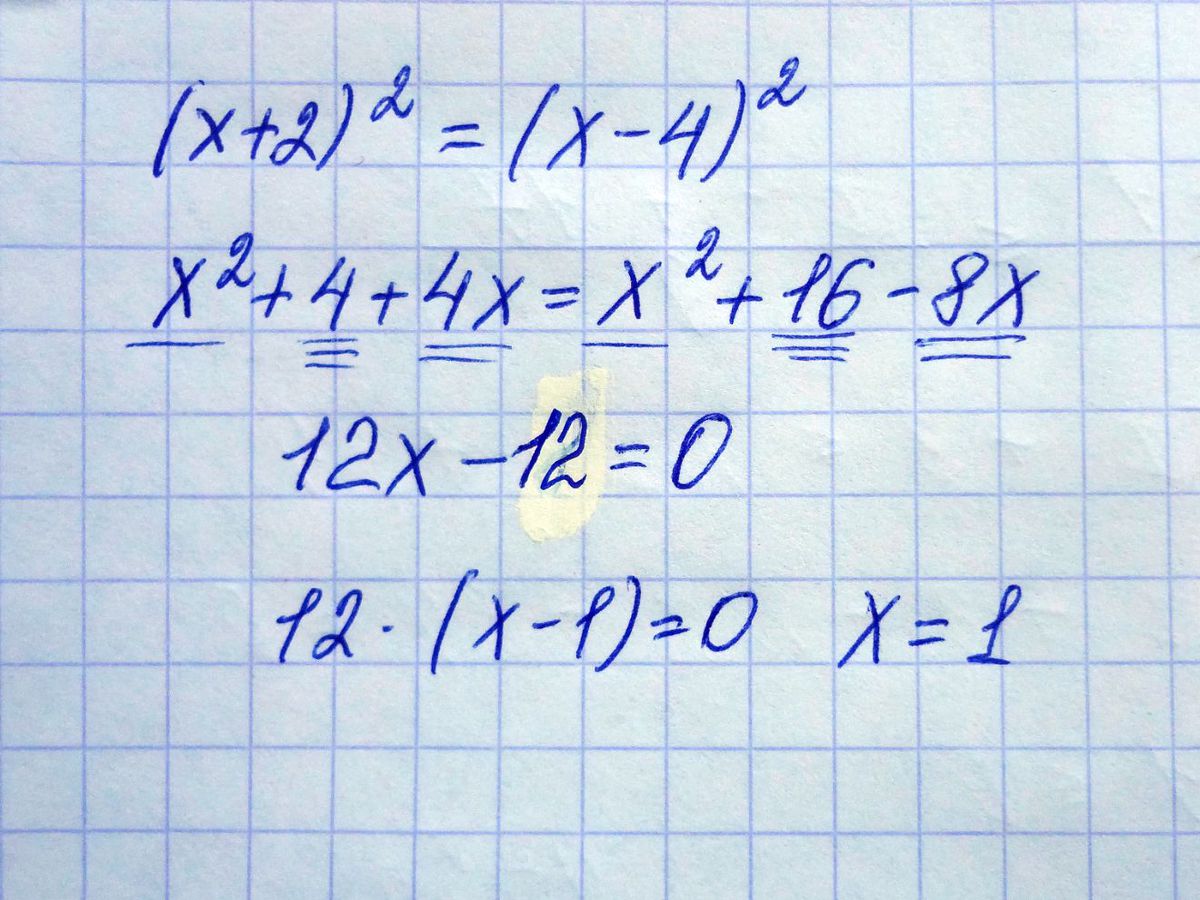 (x+2)² = (x-4)²
x² + 4 + 4x = x² + 16 - 8x
12x - 12 = 0
12 · (x-1) = 0 x = 1